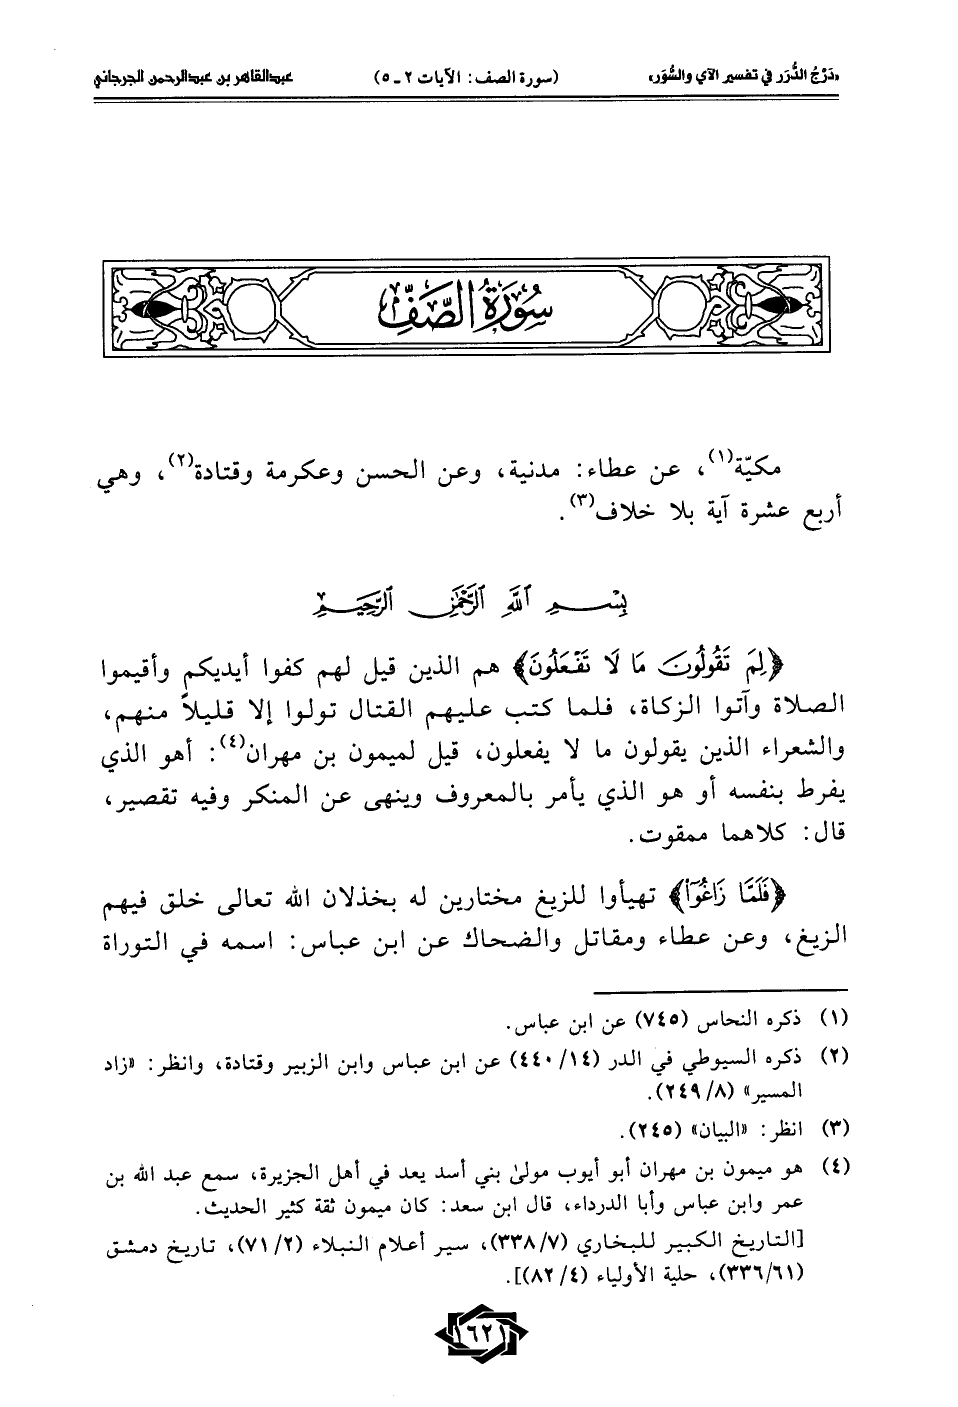 «دَرْجُ الدُّرَر في تفسير الآي والسُّوَر» (سورة الصف: الآيات ٢ ـ ٥) عبدالقاهر بن عبدالرحمن الجرجاني
سُورَةُ الصَّفِّ
مكيّة(١)، عن عطاء: مدنية، وعن الحسن وعكرمة وقتادة(٢)، وهي
أربع عشرة آية بلا خلاف(٣).
بِسْمِ ٱللَّهِ ٱلرَّحْمَٰنِ ٱلرَّحِيمِ
﴿لِمَ تَقُولُونَ مَا لَا تَفْعَلُونَ﴾ هم الذين قيل لهم كفوا أيديكم وأقيموا
الصلاة وآتوا الزكاة، فلما كتب عليهم القتال تولوا إلا قليلاً منهم،
والشعراء الذين يقولون ما لا يفعلون، قيل لميمون بن مهران(٤): أهو الذي
يفرط بنفسه أو هو الذي يأمر بالمعروف وينهى عن المنكر وفيه تقصير،
قال: كلاهما ممقوت.
﴿فَلَمَّا زَاغُوٓا۟﴾ تهيأوا للزيغ مختارين له بخذلان الله تعالى خلق فيهم
الزيغ، وعن عطاء ومقاتل والضحاك عن ابن عباس: اسمه في التوراة
(١) ذكره النحاس (٧٤٥) عن ابن عباس.
(٢) ذكره السيوطي في الدر (١٤/ ٤٤٠) عن ابن عباس وابن الزبير وقتادة، وانظر: «زاد
المسير» (٨/ ٢٤٩).
(٣) انظر: «البيان» (٢٤٥).
(٤) هو ميمون بن مهران أبو أيوب مولىٰ بني أسد يعد في أهل الجزيرة، سمع عبد الله بن
عمر وابن عباس وأبا الدرداء، قال ابن سعد: كان ميمون ثقة كثير الحديث.
[التاريخ الكبير للبخاري (٧/ ٣٣٨)، سير أعلام النبلاء (٢/ ٧١)، تاريخ دمشق
(٦١/ ٣٣٦)، حلية الأولياء (٤/ ٨٢)].
١٦٢١